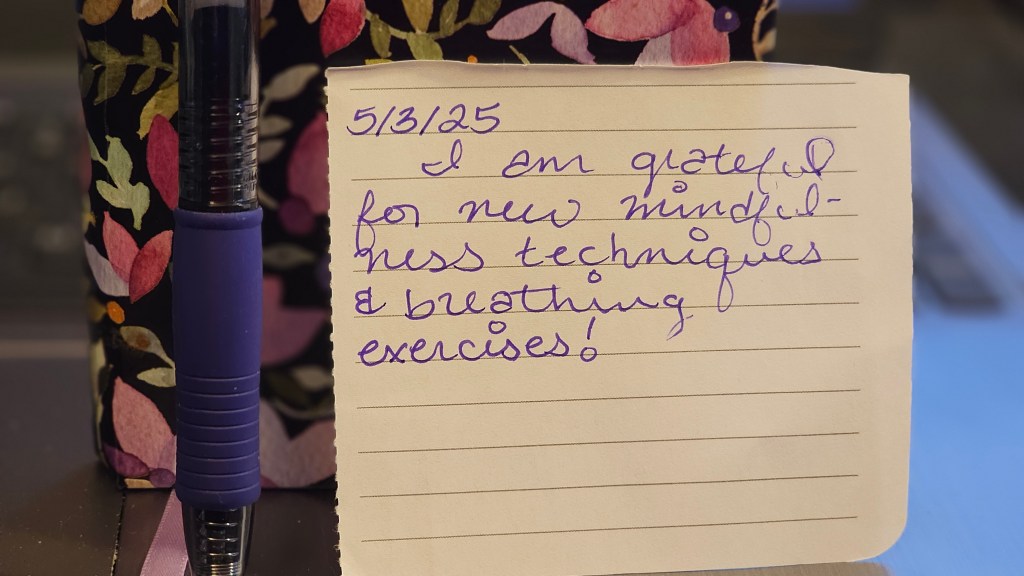 5/3/25
I am grateful
for new mindful-
ness techniques
& breathing
exercises!